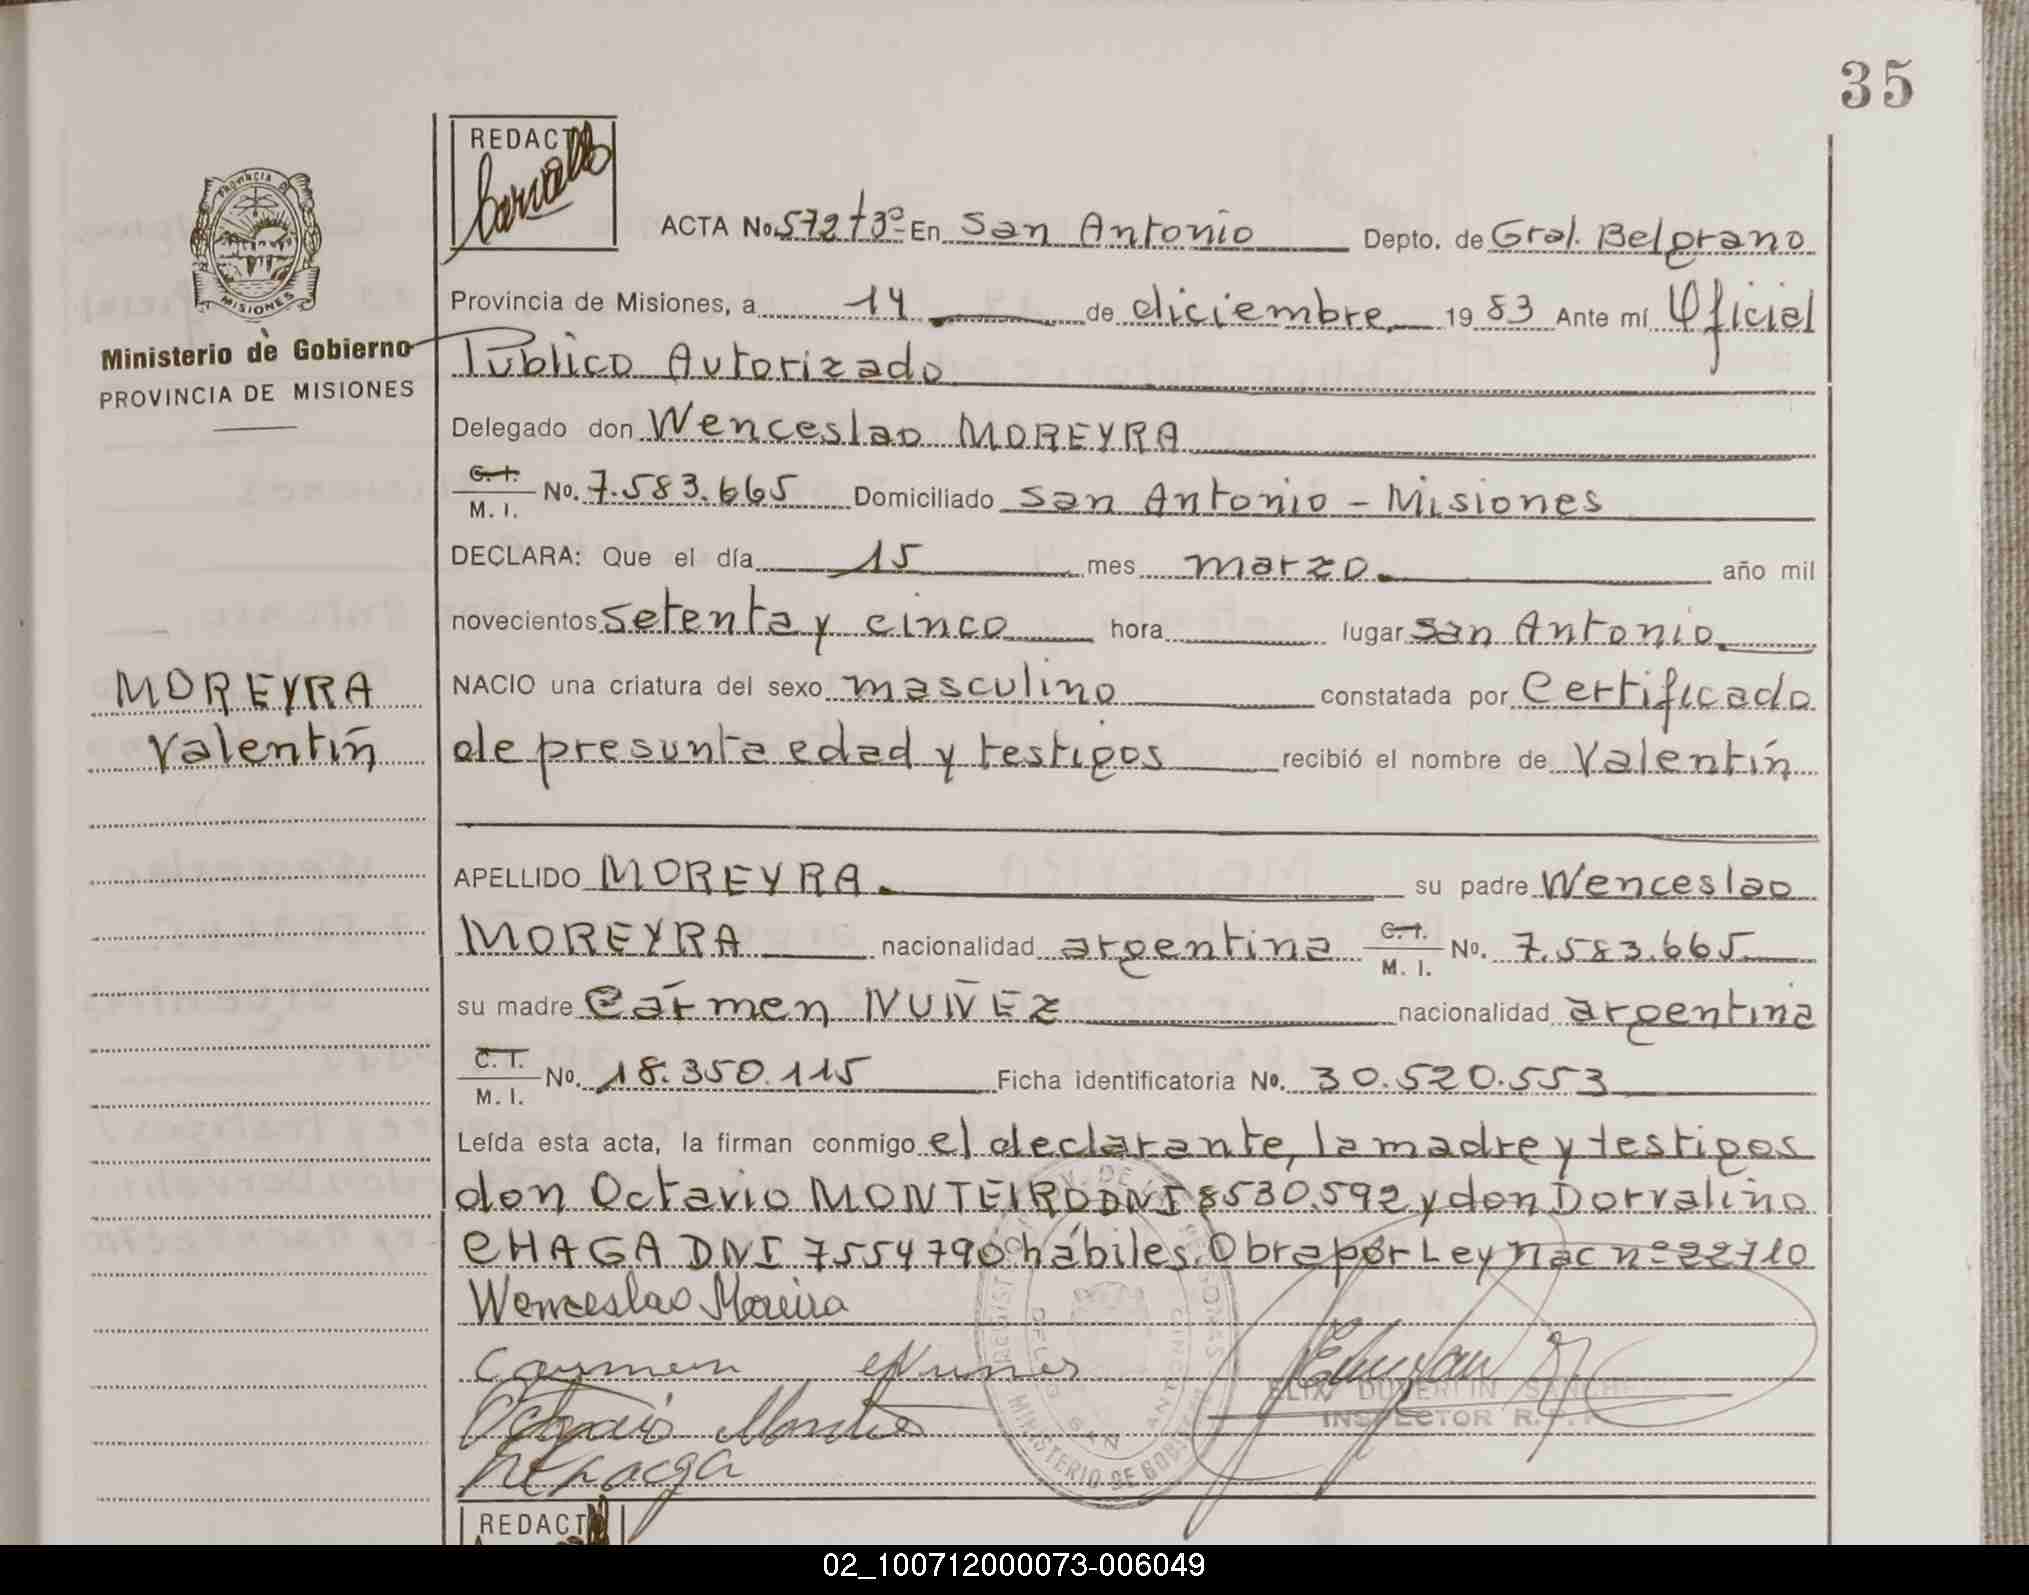 35
REDACT
Carvallo
PROVINCIA DE
MISIONES
Ministerio de Gobierno
PROVINCIA DE MISIONES
ACTA No. 572 t3º En San Antonio Depto. de Gral. Belgrano
Provincia de Misiones, a 14 de diciembre 1983 Ante mí Oficial
Público Autorizado
Delegado don Wenceslao MOREYRA
C.I. M. I. No. 7.583.665 Domiciliado San Antonio - Misiones
DECLARA: Que el día 15 mes marzo año mil
novecientos setenta y cinco hora lugar San Antonio
MOREYRA
Valentín
NACIO una criatura del sexo masculino constatada por Certificado
de presunta edad y testigos recibió el nombre de Valentín
APELLIDO MOREYRA su padre Wenceslao
MOREYRA nacionalidad argentina C.I. M. I. No. 7.583.665
su madre Cármen NUÑEZ nacionalidad argentina
C.I. M. I. No. 18.350.115 Ficha identificatoria No. 30.520.553
Leída esta acta, la firman conmigo el declarante, la madre y testigos
don Octavio MONTEIRO DNI 8530.592 y don Dorvalino
CHAGA DNI 7554790 hábiles. Obra por Ley Nac nº 22710
Wenceslao Moreira
Carmen Nunes
Octavio Monteiro
MINISTERIO DE GOBIERNO
SAN ANTONIO
INSPECTOR R.
REDACT
02_100712000073-006049